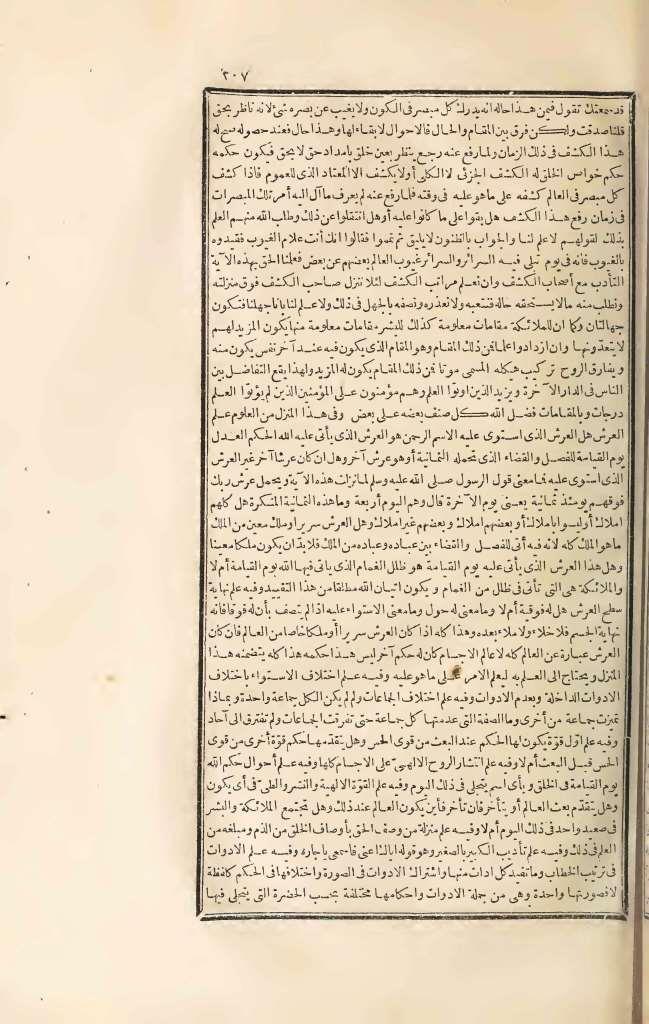 ٢٠٧
قد سمعتك تقول فيمن هذا حاله انه يدرك كل مبصر فى الكون ولا يغيب عن بصره شئ لانه ناظر بحق
قلنا صدقت ولكن فرق بين المقام والحال فالاحوال لا بقاء لها وهذا حال فعند حصوله سمح له
هذا الكشف فى ذلك الزمان ولما رفع عنه رجع ينظر بعين خلق بامداد حق لا بحق فيكون حكمه
حكم خواص الخلق له الكشف الجزئى لا الكلى أو لا يكشف الا المعتاد الذى للعموم فاذا كشف
كل مبصر فى العالم كشفه على ما هو عليه فى وقته فلما رفع عنه لم يعرف ما آل اليه أمر تلك المبصرات
فى زمان رفع هذا الكشف هل بقوا على ما كانوا عليه أو هل انتقلوا عن ذلك وطلب الله منهم العلم
بذلك لقولهم لا علم لنا والجواب بالظنون لا يليق ثم تمموا فقالوا انك أنت علام الغيوب فقيدوه
بالغيوب فانه فى يوم تبلى فيه السرائر والسرائر غيوب العالم بعضهم عن بعض فعلمنا الحق بهذه الآية
التأدب مع أصحاب الكشف وان نعلم مراتب الكشف لئلا ننزل صاحب الكشف فوق منزلته
ونطلب منه ما لا يستحقه حاله فنتعبه ولا نعذره ونصفه بالجهل فى ذلك ولا علم لنا بانا جهلنا فتكون
جهالتان وكما ان للملائكة مقامات معلومة كذلك للبشر مقامات معلومة منها يكون المزيد لهم
لا يتعدونها وان ازدادوا علما فمن ذلك المقام وهو المقام الذى يكون فيه عند آخر نفس يكون منه
ويفارق الروح تركيب هيكله المسمى موتا فمن ذلك المقام يكون له المزيد ولهذا يقع التفاضل بين
الناس فى الدار الآخرة ويزيد الذين اوتوا العلم وهم مؤمنون على المؤمنين الذين لم يؤتوا العلم
درجات وبالمقامات فضل الله كل صنف بعضه على بعض وفى هذا المنزل من العلوم علم
العرش هل العرش الذى استوى عليه الاسم الرحمن هو العرش الذى يأتى عليه الله الحكم العدل
يوم القيامة للفصل والقضاء الذى تحمله الثمانية أو هو عرش آخر وهل ان كان عرشا آخر غير العرش
الذى استوى عليه فما معنى قول الرسول صلى الله عليه وسلم لما نزلت هذه الآية ويحمل عرش ربك
فوقهم يومئذ ثمانية يعنى يوم الآخرة قال وهم اليوم أربعة وما هذه الثمانية المنكرة هل كلهم
املاك أو ليسوا باملاك أو بعضهم املاك وبعضهم غير املاك وهل العرش سرير او ملك معين من الملك
ما هو الملك كله لانه فيه أتى للفصل والقضاء بين عباده وعباده من الملك فلا بد ان يكون ملكا معينا
وهل هذا العرش الذى يأتى عليه يوم القيامة هو ظلل الغمام الذى ياتى فيها الله يوم القيامة أم لا
والملائكة هى التى تأتى فى ظلل من الغمام ويكون اتيان الله مطلقا من هذا التقييد وفيه علم نهاية
سطح العرش هل له فوقية أم لا وما معنى له حول وما معنى الاستواء عليه اذا لم يتصف بأن له فوقا فانه
نهاية الجسم فلا خلاء ولا ملاء بعده وهذا كله اذا كان العرش سريرا أو ملكا خاصا من العالم فان كان
العرش عبارة عن العالم كله لا عالم الاجسام كان له حكم آخر ليس هذا حكمه هذا كله يتضمنه هذا
المنزل ويحتاج الى العلم به ليعلم الامر على ما هو عليه وفيه علم اختلاف الاستواء باختلاف
الادوات الداخلة وبعدم الادوات وفيه علم اختلاف الجماعات ولم لم يكن الكل جماعة واحدة وبماذا
تميزت جماعة من أخرى وما الصفة التى عدمتها كل جماعة حتى تفرقت الجماعات ولم تفترق الى آحاد
وفيه علم اول قوة يكون لها الحكم عند البعث من قوى الحس وهل يتقدمها حكم قوة أخرى من قوى
الحس قبل البعث أم لا وفيه علم انتشار الروح الالهى على الاجسام كلها وفيه علم أحوال حكم الله
يوم القيامة فى الخلق وبأى اسم يتجلى فى ذلك اليوم وفيه علم القوة الالهية والنشر والطى فى أى يكون
وهل يتقدم بعث العالم أو يتأخر فان تأخر فأين يكون العالم عند ذلك وهل تجتمع الملائكة والبشر
فى صعيد واحد فى ذلك اليوم أم لا وفيه علم منزلة من وصف الحق بأوصاف الخلق من الذم ومبلغه من
العلم فى ذلك وفيه علم تأديب الكبير بالصغير وهو قوله اياك اعنى فاسمعى يا جاره وفيه علم الادوات
فى ترتيب الخطاب وما تفيد كل ادات منها واشتراك الادوات فى الصورة واختلافها فى الحكم كلفظة
لا فصورتها واحدة وهى من جملة الادوات واحكامها مختلفة بحسب الحضرة التى يتجلى فيها